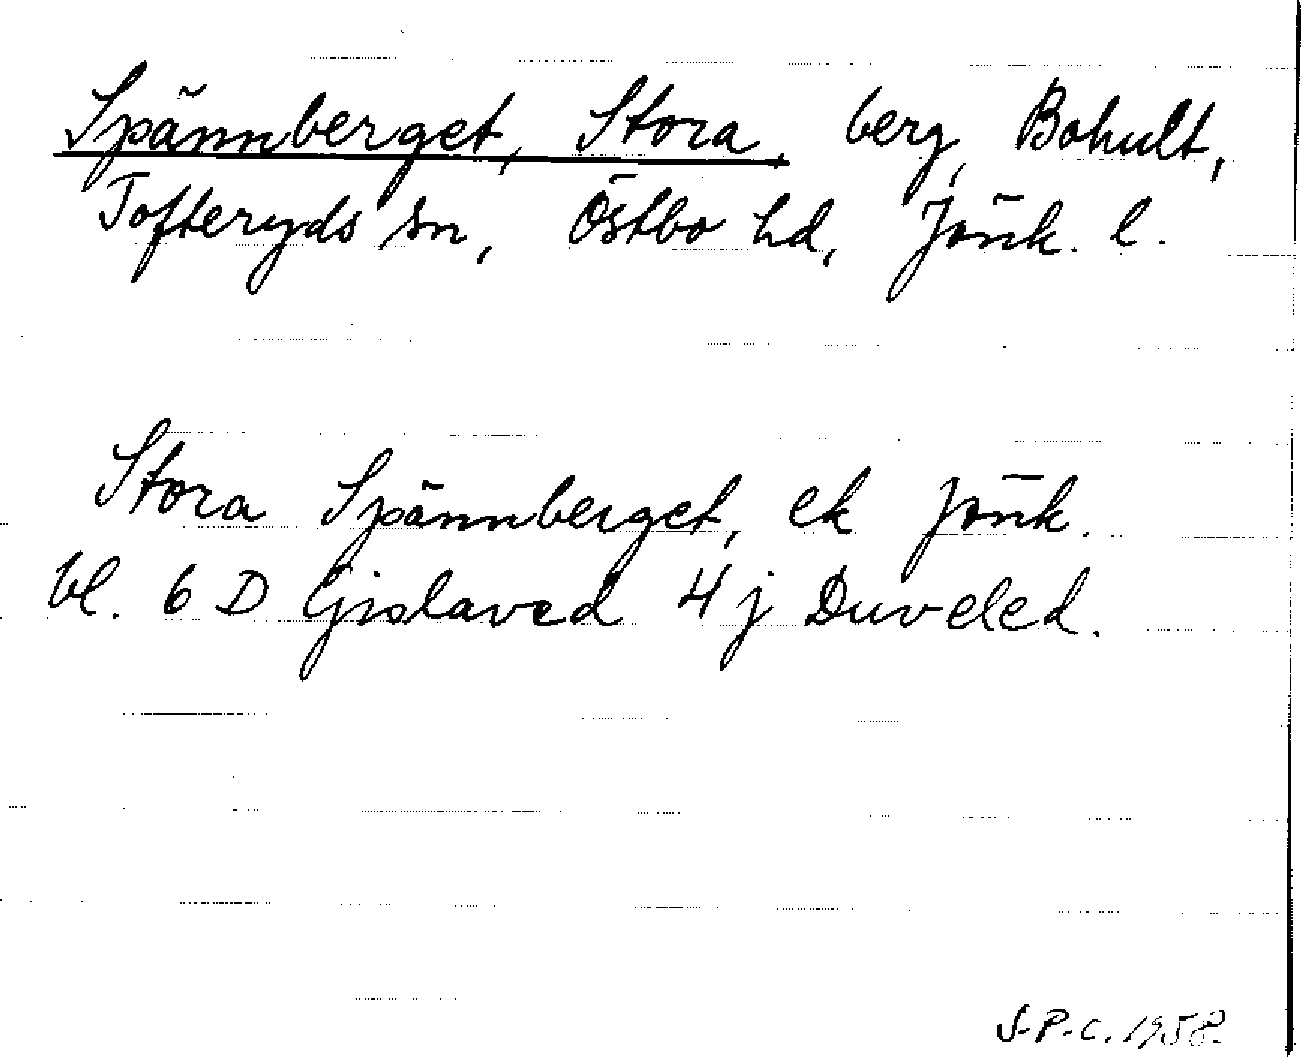 Spännberget, Stora, berg, Bohult,
Tofteryds sn, Östbo hd, Jönk. l.
Stora Spännberget, ek Jönk.
bl. 6 D Gislaved 4 j Duveled.
S.P.C. 1958.